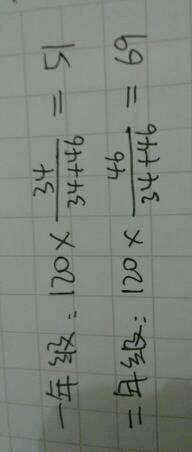 一年级：120×34/34+46 = 51
二年级：120×46/34+46 = 69